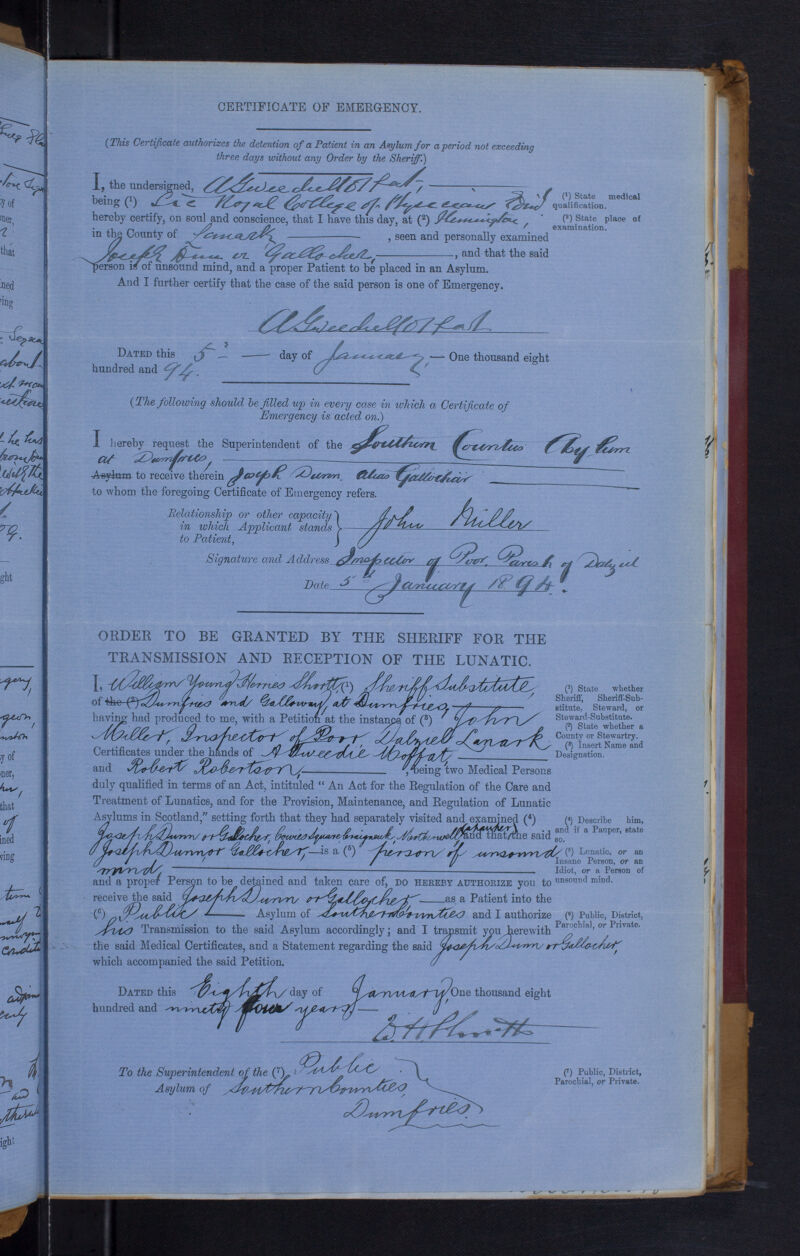 CERTIFICATE OF EMERGENCY.
(This Certificate authorizes the detention of a Patient in an Asylum for a period not exceeding
three days without any Order by the Sheriff.)
I, the undersigned, A Tweedie Moffat,
being (1) Lic Royal College of Physicians Edin
hereby certify, on soul and conscience, that I have this day, at (2) Flemington,
in the County of Lanark, seen and personally examined
Joseph Dunn or Gallocher, and that the said
person is of unsound mind, and a proper Patient to be placed in an Asylum.
And I further certify that the case of the said person is one of Emergency.
(1) State medical
qualification.
(2) State place of
examination.
A Tweedie Moffat
DATED this 5 day of January, One thousand eight
hundred and 94.
(The following should be filled up in every case in which a Certificate of
Emergency is acted on.)
I hereby request the Superintendent of the Southern Counties Asylum
at Dumfries,
Asylum to receive therein Joseph Dunn alias Gallocher
to whom the foregoing Certificate of Emergency refers.
Relationship or other capacity
in which Applicant stands
to Patient,
John Miller
Signature and Address Inspector of Poor. Parish of Dalziel
Date 5th January 1894.
ORDER TO BE GRANTED BY THE SHERIFF FOR THE
TRANSMISSION AND RECEPTION OF THE LUNATIC.
I, William Young Homes Shortt, (1) Sheriff Substitute,
of the (2) Dumfries and Galloway, at Dumfries,
having had produced to me, with a Petition at the instance of (3) John
Miller, Inspector of Poor, Dalziell Lanark
Certificates under the hands of A Tweedie Moffat,
and Robert Robertson, being two Medical Persons
duly qualified in terms of an Act, intituled "An Act for the Regulation of the Care and
Treatment of Lunatics, and for the Provision, Maintenance, and Regulation of Lunatic
Asylums in Scotland," setting forth that they had separately visited and examined (4)
Joseph Dunn or Gallocher, Cowies Square Craigneuk, Motherwell, a pauper and that the said
Joseph Dunn or Gallocher, is a (5) person of unsound
mind,
and a proper Person to be detained and taken care of, DO HEREBY AUTHORIZE you to
receive the said Joseph Dunn or Gallocher as a Patient into the
(6) Public Asylum of Southern Counties and I authorize
his Transmission to the said Asylum accordingly; and I transmit you herewith
the said Medical Certificates, and a Statement regarding the said Joseph Dunn or Gallocher,
which accompanied the said Petition.
(1) State whether
Sheriff, Sheriff-Sub-
stitute, Steward, or
Steward-Substitute.
(2) State whether a
County or Stewartry.
(3) Insert Name and
Designation.
(4) Describe him,
and if a Pauper, state
so.
(5) Lunatic, or an
Insane Person, or an
Idiot, or a Person of
unsound mind.
(6) Public, District,
Parochial, or Private.
DATED this Eighth day of January One thousand eight
hundred and ninety four years
To the Superintendent of the (7) Public
Asylum of Southern Counties
Dumfries.
(7) Public, District,
Parochial, or Private.